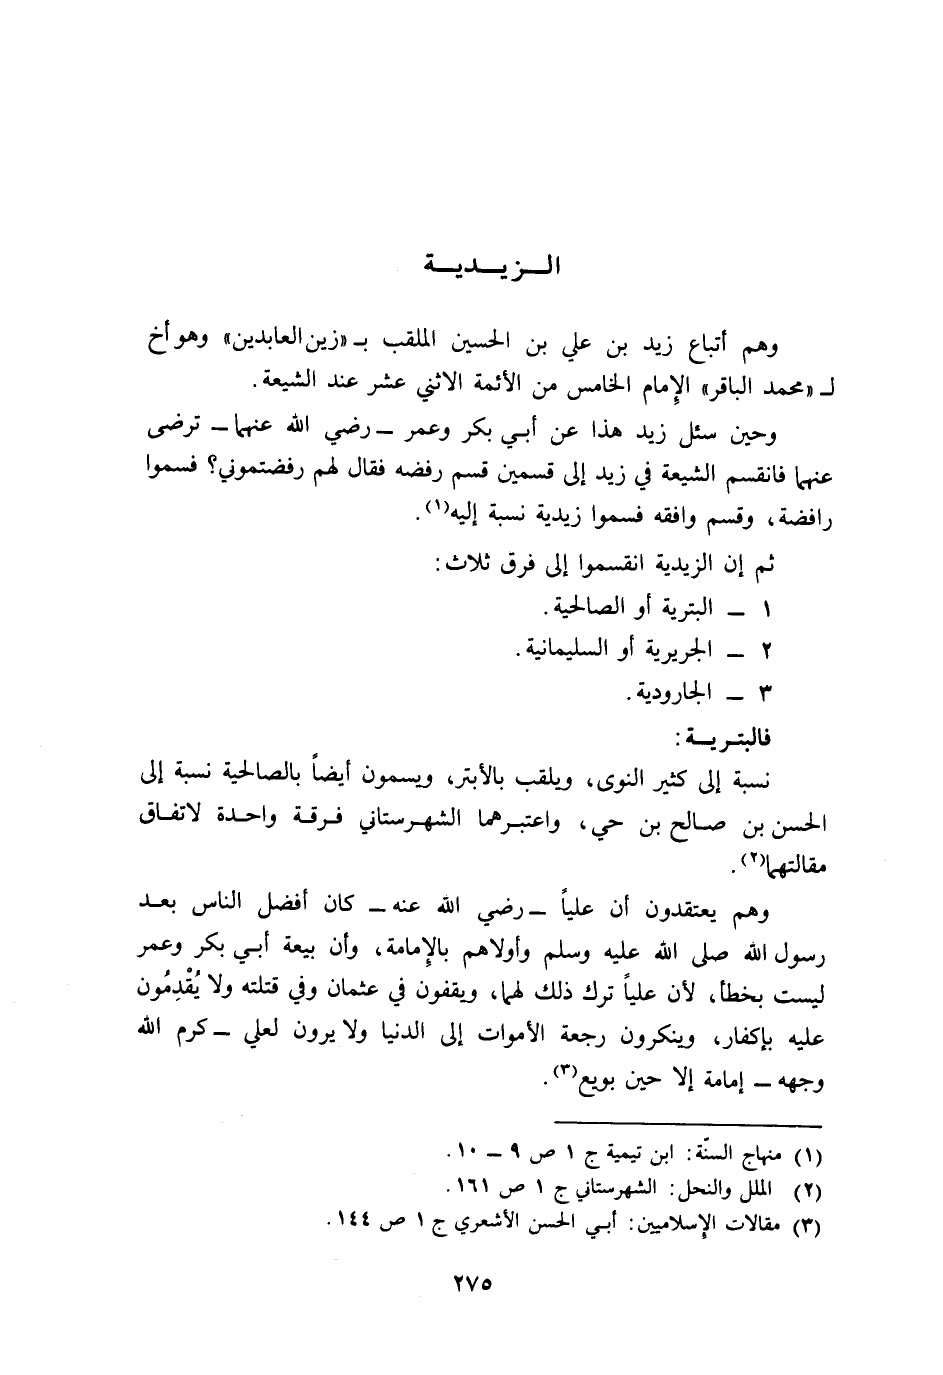 الـزيـديـة
وهم أتباع زيد بن علي بن الحسين الملقب بـ «زين العابدين» وهو أخ
لـ «محمد الباقر» الإمام الخامس من الأئمة الاثني عشر عند الشيعة.
وحين سئل زيد هذا عن أبي بكر وعمر ــ رضي الله عنهما ــ ترضى
عنهما فانقسم الشيعة في زيد إلى قسمين قسم رفضه فقال لهم رفضتموني؟ فسموا
رافضة، وقسم وافقه فسموا زيدية نسبة إليه(١).
ثم إن الزيدية انقسموا إلى فرق ثلاث:
١ ــ البترية أو الصالحية.
٢ ــ الجريرية أو السليمانية.
٣ ــ الجارودية.
فالبتريـة:
نسبة إلى كثير النوى، ويلقب بالأبتر، ويسمون أيضاً بالصالحية نسبة إلى
الحسن بن صالح بن حي، واعتبرهما الشهرستاني فرقة واحدة لاتفاق
مقالتهما(٢).
وهم يعتقدون أن علياً ــ رضي الله عنه ــ كان أفضل الناس بعد
رسول الله صلى الله عليه وسلم وأولاهم بالإمامة، وأن بيعة أبي بكر وعمر
ليست بخطأ، لأن علياً ترك ذلك لهما، ويقفون في عثمان وفي قتلته ولا يُقْدِمُون
عليه بإكفار، وينكرون رجعة الأموات إلى الدنيا ولا يرون لعلي ــ كرم الله
وجهه ــ إمامة إلا حين بويع(٣).
(١) منهاج السنّة: ابن تيمية ج ١ ص ٩ ــ ١٠.
(٢) الملل والنحل: الشهرستاني ج ١ ص ١٦١.
(٣) مقالات الإسلاميين: أبي الحسن الأشعري ج ١ ص ١٤٤.
٢٧٥